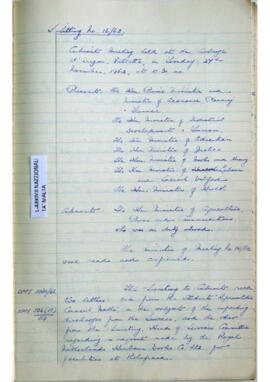 Sitting No. 16/62.
Cabinet Meeting held at the Auberge
d'Aragon, Valletta, on Tuesday, 27th
November, 1962, at 10.30 a.m.
Present: The Hon. Prime Minister and
Minister of Economic Planning
& Finance
The Hon. Minister of Industrial
Development & Tourism
The Hon. Minister of Education
The Hon. Minister of Justice
The Hon. Minister of Works and Housing
The Hon. Minister of Labour
and Social Welfare
The Hon. Minister of Health.
Absent: The Hon. Minister of Agriculture,
Power and Communications
who was on duty abroad.
The minutes of Meeting No 15/62
were read and confirmed.
L-ARKIVJI NAZZJONALI
TA' MALTA
OPM
The Secretary to Cabinet read
two letters, one from the
on the subject of the impending
discharges from the Services, and the other
from the Secretary, Heads of Services Committee
regarding a request made by the Royal
Netherlands Harbour Works Co. Ltd. for
facilities at Kalafrana.